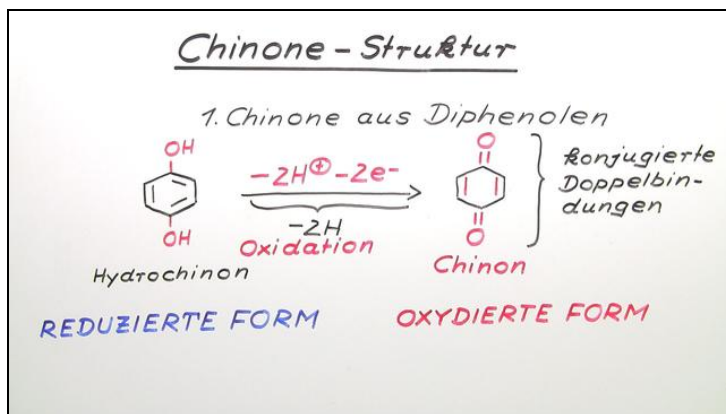 Chinone - Struktur
1. Chinone aus Diphenolen
OH
OH
Hydrochinon
-2H⊕-2e-
-2H
Oxidation
O
O
Chinon
konjugierte
Doppelbin-
dungen
REDUZIERTE FORM
OXYDIERTE FORM